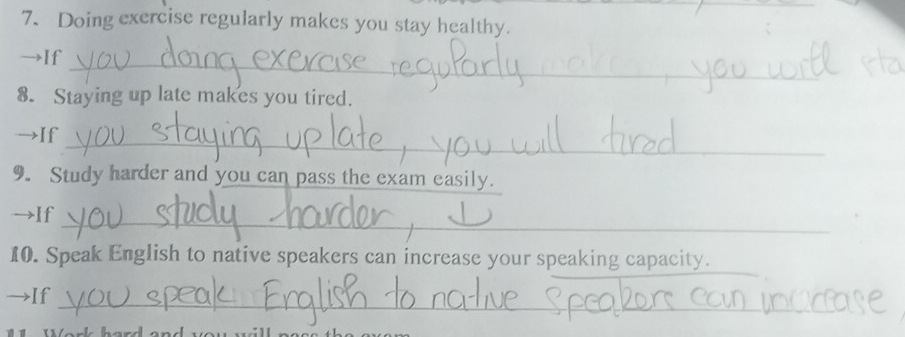 7. Doing exercise regularly makes you stay healthy.
→If you doing exercise regularly , you will sta
8. Staying up late makes you tired.
→If you staying up late, you will tired
9. Study harder and you can pass the exam easily.
→If you study harder, ↓
10. Speak English to native speakers can increase your speaking capacity.
→If you speak English to native speakers can increase
11. Work hard and you will pass the exam